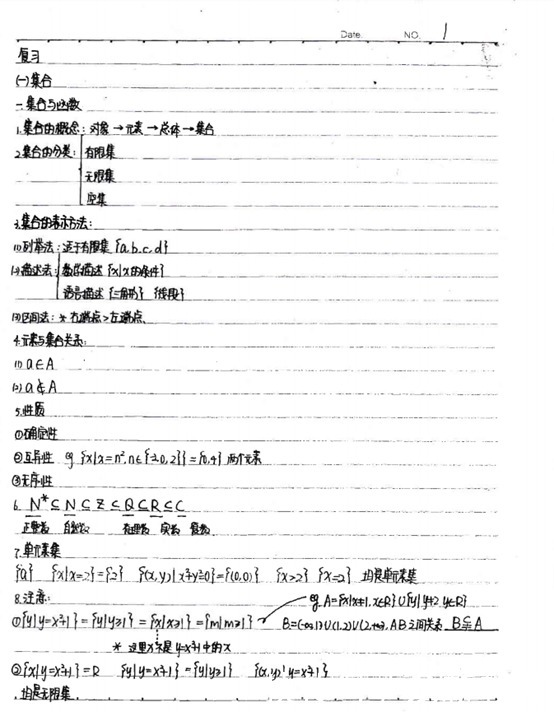 Date. NO. 1
复习
(一)集合
一.集合与函数
1.集合的概念：对象→元素→总体→集合
2.集合的分类：有限集
无限集
空集
3.集合的表示方法：
(1)列举法：适于有限集 {a,b,c,d}
(2)描述法：数学描述 {x|x的条件}
语言描述 {三角形} {线段}
(3)区间法：* 右端点>左端点
4.元素与集合关系：
(1) a∈A
(2) a∉A
5.性质
①确定性
②互异性 eg {x|x=n²,n∈{-2,0,2}}={0,4} 两个元素
③无序性
6. N*⊆N⊆Z⊆Q⊆R⊆C
正整数 自然数 有理数 实数 复数
7.单元素集
{a} {x|x=2}={2} {(x,y)|x²+y²=0}={(0,0)} {x>2} {x=2} 均是单元素集
8.注意：
eg. A={x|x≠1,x∈R}∪{y|y≠2,y∈R}
①{y|y=x²+1}={y|y≥1}={x|x≥1}={m|m≥1} B=(-∞,1)∪(1,2)∪(2,+∞), A B 之间关系 B⫋A
* 这里x不是 y=x²+1中的x
②{x|y=x²+1}=R {y|y=x²+1}={y|y≥1} {(x,y)|y=x²+1}
均是无限集